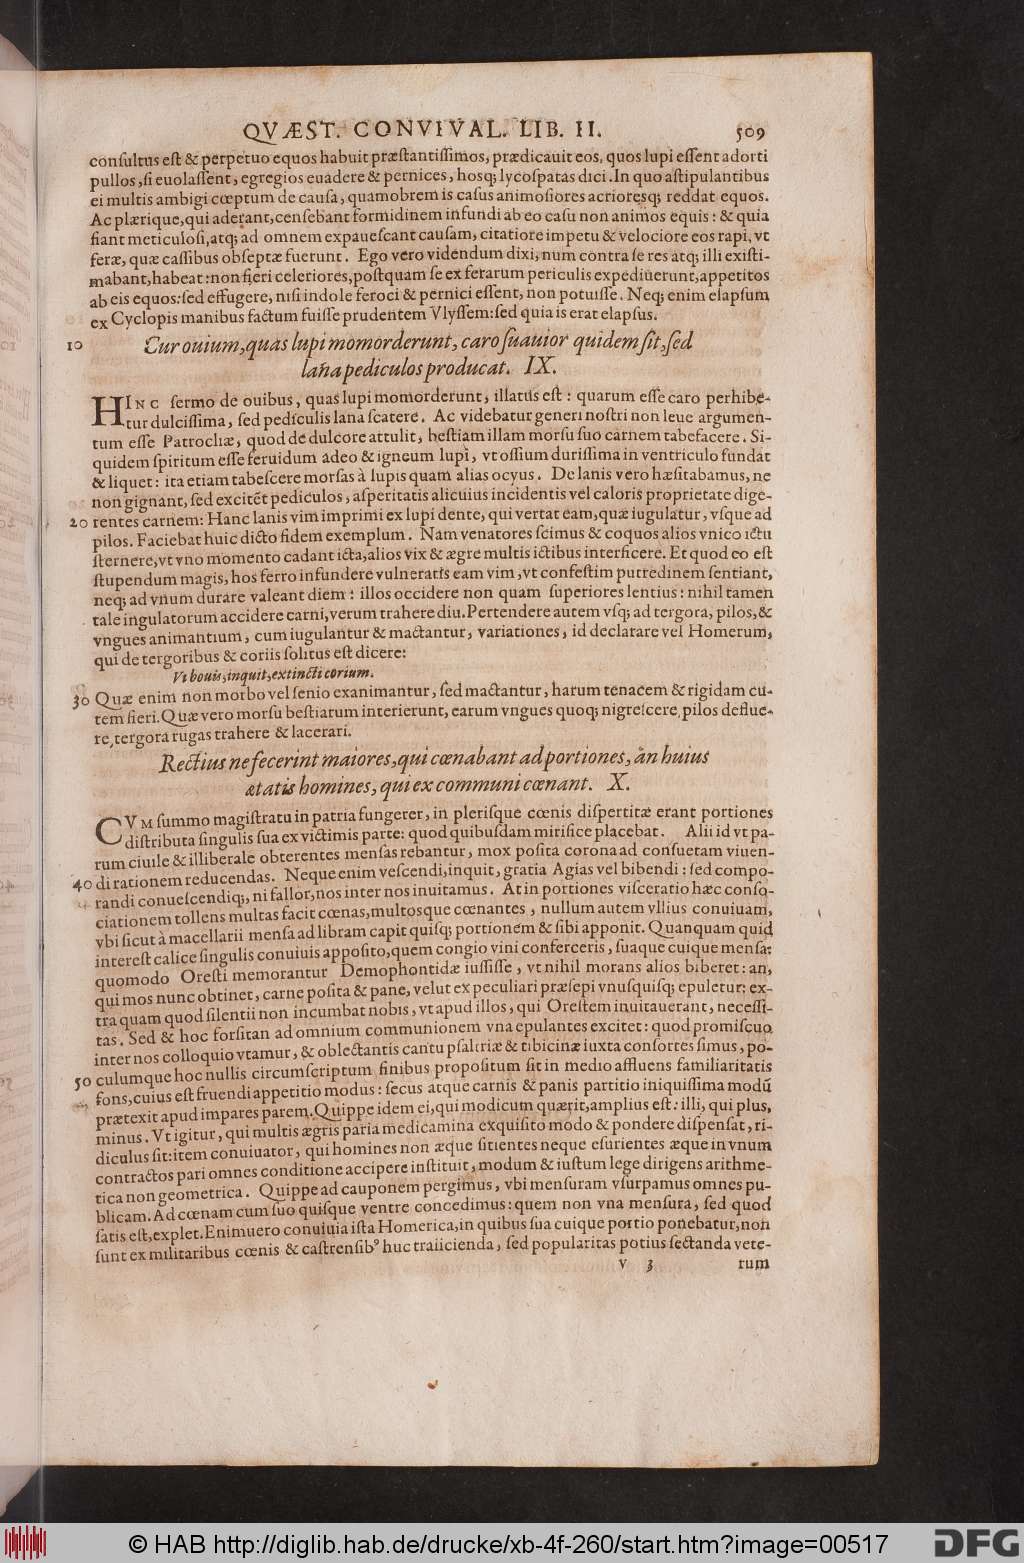 QVÆST. CONVIVAL. LIB. II. 509
consultus est & perpetuo equos habuit præstantissimos, prædicauit eos, quos lupi essent adorti
pullos, si euolassent, egregios euadere & pernices, hosq; lycospatas dici. In quo astipulantibus
ei multis ambigi cœptum de causa, quamobrem is casus animosiores acrioresq; reddat equos.
Ac plærique, qui aderant, censebant formidinem infundi ab eo casu non animos equis: & quia
fiant meticulosi, atq; ad omnem expauescant causam, citatiore impetu & velociore eos rapi, vt
feræ, quæ cassibus obseptæ fuerunt. Ego vero videndum dixi, num contra se res atq; illi existi-
mabant, habeat: non fieri celeriores, postquam se ex ferarum periculis expediuerunt, appetitos
ab eis equos: sed effugere, nisi indole feroci & pernici essent, non potuisse. Neq; enim elapsum
ex Cyclopis manibus factum fuisse prudentem Vlyssem: sed quia is erat elapsus.
10 Cur ouium, quas lupi momorderunt, caro suauior quidem sit, sed
lana pediculos producat. IX.
HINC sermo de ouibus, quas lupi momorderunt, illatus est: quarum esse caro perhibe-
tur dulcissima, sed pediculis lana scatere. Ac videbatur generi nostri non leue argumen-
tum esse Patrocliæ, quod de dulcore attulit, bestiam illam morsu suo carnem tabefacere. Si-
quidem spiritum esse feruidum adeo & igneum lupi, vt ossium durissima in ventriculo fundat
& liquet: ita etiam tabescere morsas à lupis quam alias ocyus. De lanis vero hæsitabamus, ne
non gignant, sed excitẽt pediculos, asperitatis alicuius incidentis vel caloris proprietate dige-
20 rentes carnem: Hanc lanis vim imprimi ex lupi dente, qui vertat eam, quæ iugulatur, vsque ad
pilos. Faciebat huic dicto fidem exemplum. Nam venatores scimus & coquos alios vnico ictu
sternere, vt vno momento cadant icta, alios vix & ægre multis ictibus interficere. Et quod eo est
stupendum magis, hos ferro infundere vulneratis eam vim, vt confestim putredinem sentiant,
neq; ad vnum durare valeant diem: illos occidere non quam superiores lentius: nihil tamen
tale iugulatorum accidere carni, verum trahere diu. Pertendere autem vsq; ad tergora, pilos, &
vngues animantium, cum iugulantur & mactantur, variationes, id declarare vel Homerum,
qui de tergoribus & coriis solitus est dicere:
Vi bouis, inquit, extincti corium.
30 Quæ enim non morbo vel senio exanimantur, sed mactantur, harum tenacem & rigidam cu-
tem fieri. Quæ vero morsu bestiarum interierunt, earum vngues quoq; nigrescere, pilos deflue-
re, tergora rugas trahere & lacerari.
Rectius ne fecerint maiores, qui cœnabant ad portiones, an huius
ætatis homines, qui ex communi cœnant. X.
CVM summo magistratu in patria fungerer, in plerisque cœnis dispertitæ erant portiones
distributa singulis sua ex victimis parte: quod quibusdam mirifice placebat. Alii id vt pa-
rum ciuile & illiberale obterentes mensas rebantur, mox posita corona ad consuetam viuen-
40 di rationem reducendas. Neque enim vescendi, inquit, gratia Agias vel bibendi: sed compo-
randi conuescendiq;, ni fallor, nos inter nos inuitamus. At in portiones visceratio hæc conso-
ciationem tollens multas facit cœnas, multosque cœnantes, nullum autem vllius conuiuam,
vbi sicut à macellarii mensa ad libram capit quisq; portionem & sibi apponit. Quanquam quid
interest calice singulis conuiuis apposito, quem congio vini conferceris, suaque cuique mensa:
quomodo Oresti memorantur Demophontidæ iussisse, vt nihil morans alios biberet: an,
qui mos nunc obtinet, carne posita & pane, velut ex peculiari præsepi vnusquisq; epuletur: ex-
tra quam quod silentii non incumbat nobis, vt apud illos, qui Orestem inuitauerant, necessi-
tas. Sed & hoc forsitan ad omnium communionem vna epulantes excitet: quod promiscuo
inter nos colloquio vtamur, & oblectantis cantu psaltriæ & tibicinæ iuxta consortes simus, po-
50 culumque hoc nullis circumscriptum finibus propositum sit in medio affluens familiaritatis
fons, cuius est fruendi appetitio modus: secus atque carnis & panis partitio iniquissima modũ
prætexit apud impares parem. Quippe idem ei, qui modicum quærit, amplius est: illi, qui plus,
minus. Vt igitur, qui multis ægris paria medicamina exquisito modo & pondere dispensat, ri-
diculus sit: item conuiuator, qui homines non æque sitientes neque esurientes æque in vnum
contractos pari omnes conditione accipere instituit, modum & iustum lege dirigens arithme-
tica non geometrica. Quippe ad cauponem pergimus, vbi mensuram vsurpamus omnes pu-
blicam. Ad cœnam cum suo quisque ventre concedimus: quem non vna mensura, sed quod
satis est, explet. Enimuero conuiuia ista Homerica, in quibus sua cuique portio ponebatur, non
sunt ex militaribus cœnis & castrensibꝰ huc traiicienda, sed popularitas potius sectanda vete-
v 3 rum
© HAB http://diglib.hab.de/drucke/xb-4f-260/start.htm?image=00517 DFG